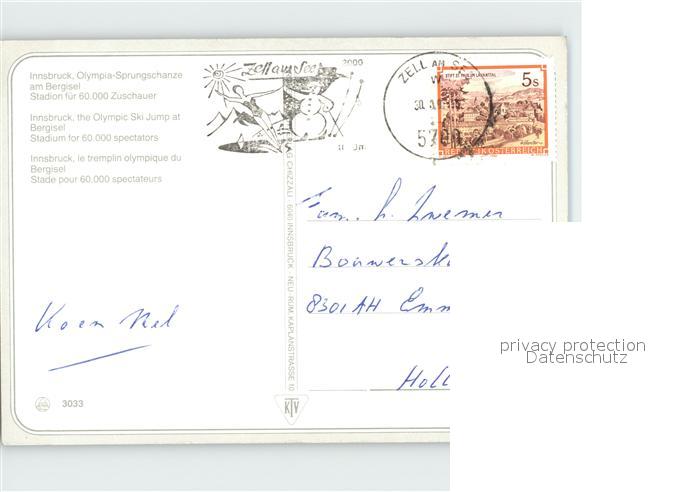 Innsbruck, Olympia-Sprungschanze
am Bergisel
Stadion für 60.000 Zuschauer
Innsbruck, the Olympic Ski Jump at
Bergisel
Stadium for 60.000 spectators
Innsbruck, le tremplin olympique du
Bergisel
Stade pour 60.000 spectateurs
Zell am See
ZELL AM SEE
STIFT ST. PAUL IM LAVANTTAL
5s
REPUBLIK ÖSTERREICH
Fam. h.
8301 AH Emm
Holl
Koen
CHIZZALI - 6040 INNSBRUCK - NEU-RUM, KAPLANSTRASSE 10
3033
KTV
privacy protection
Datenschutz